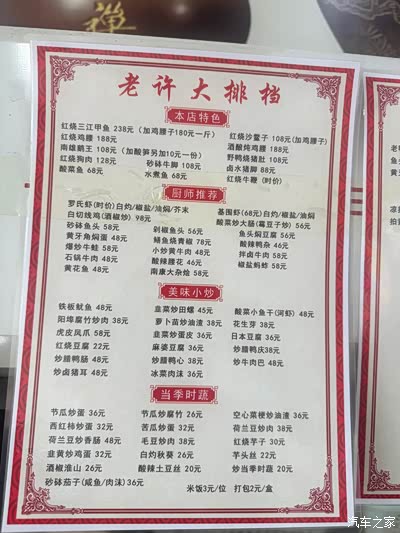 禅
老许大排档
本店特色
红烧三江甲鱼 238元（加鸡腰子180元一斤）
红烧鸡腰 188元
南雄鹅王 108元（加酸笋另加10元一份）
红烧狗肉 128元 砂钵牛脚 108元
酸菜鱼 68元 水煮鱼 68元
红烧沙鳖子 108元(加鸡腰子)
酒酸炖鸡腰 188元
野鸭烧猪肚 108元
卤水猪脚 88元
红烧牛鞭 (时价)
厨师推荐
罗氏虾(时价)白灼/椒盐/油焖/芥末
白切线鸡(酒椒炒) 98元
砂钵鱼头 58元 剁椒鱼头 56元
黄牙角焖蛋 48元 鳝鱼烧青椒 78元
爆炒牛蛙 58元 小炒黄牛肉 48元
石锅牛肉 48元 酸辣腰花 46元
黄花鱼 48元 南康大杂烩 58元
基围虾(68元)白灼/椒盐/油焖
酸菜炒大肠(霉豆子炒) 56元
鱼头焖豆腐 56元
酸辣鸭杂 46元
拌卤牛肉 58元
椒盐蚂蚱 58元
美味小炒
铁板鱿鱼 48元 韭菜炒田螺 45元 酸菜小鱼干(河虾) 48元
阳埠腐竹炒肉 38元 萝卜苗炒油渣 38元 花生芽 38元
虎皮凤爪 58元 韭菜炒蛋皮 38元 日本豆腐 36元
红烧豆腐 22元 麻婆豆腐 36元 炒腊鸭庆38元
炒腊鸭肠 48元 炒腊鸭心 38元 炒牛肉巴 48元
炒卤猪耳 48元 冰菜肉沫 36元
当季时蔬
节瓜炒蛋 36元 节瓜炒腐竹 26元 空心菜梗炒油渣 36元
西红柿炒蛋 32元 苦瓜炒蛋 32元 荷兰豆炒肉 38元
荷兰豆炒香肠 48元 毛豆炒肉 38元 红烧芋子 30元
韭黄炒鸡蛋 32元 白灼秋葵 26元 芋头丝 22元
酒椒淮山 26元 酸辣土豆丝 20元 炒当季时蔬 20元
砂钵茄子(咸鱼/肉沫)36元 米饭3元/位 打包2元/盒
汽车之家